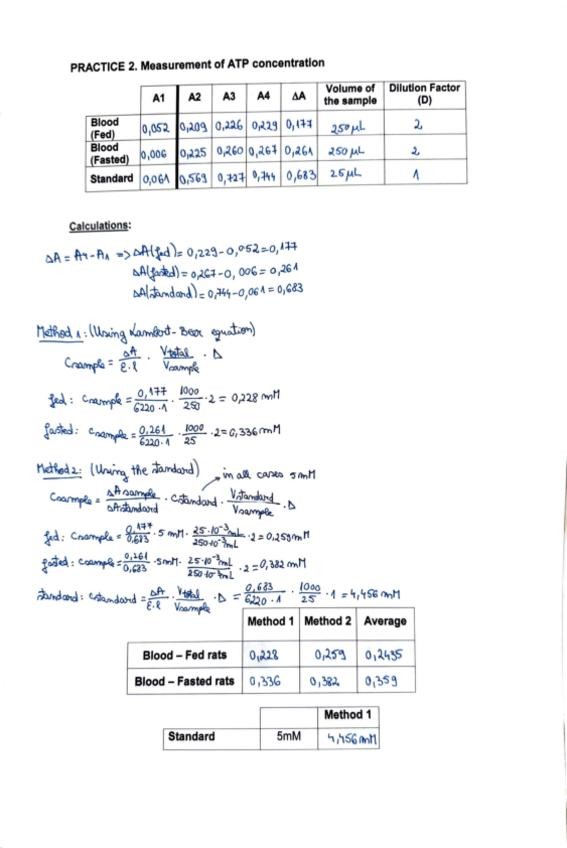 PRACTICE 2. Measurement of ATP concentration
A1 A2 A3 A4 ΔA Volume of the sample Dilution Factor (D)
Blood (Fed) 0,052 0,209 0,226 0,229 0,177 250 μL 2
Blood (Fasted) 0,006 0,225 0,260 0,267 0,261 250 μL 2
Standard 0,061 0,569 0,727 0,744 0,683 25 μL 1
Calculations:
ΔA = A4-A1 => ΔA(fed)= 0,229-0,052=0,177
ΔA(fasted)=0,267-0,006=0,261
ΔA(standard)=0,744-0,061=0,683
Method 1: (Using Lambert-Beer equation)
Csample = ΔA/Ɛ·l · Vtotal/Vsample · D
fed: Csample = 0,177/6220·1 · 1000/250 ·2 = 0,228 mM
fasted: Csample = 0,261/6220·1 · 1000/25 ·2=0,336 mM
Method 2: (Using the standard) in all cases 5mM
Csample = ΔAsample/ΔAstandard · Cstandard · Vstandard/Vsample · D
fed: Csample = 0,177/0,683 · 5 mM · 25·10⁻³mL/250·10⁻³mL ·2=0,259mM
fasted: Csample=0,261/0,683 ·5mM· 25·10⁻³mL/250·10⁻³mL ·2=0,382 mM
standard: Cstandard = ΔA/Ɛ.l · Vtotal/Vsample ·D = 0,683/6220·1 · 1000/25 ·1 = 4,456 mM
Method 1 Method 2 Average
Blood – Fed rats 0,228 0,259 0,2435
Blood – Fasted rats 0,336 0,382 0,359
Method 1
Standard 5mM 4,456 mM